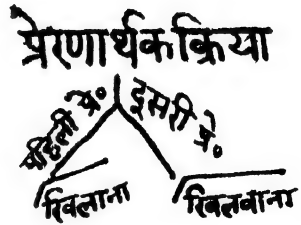 प्रेरणार्थक क्रिया
पहिली प्रे०
दूसरी प्रे०
खिलाना
खिलवाना